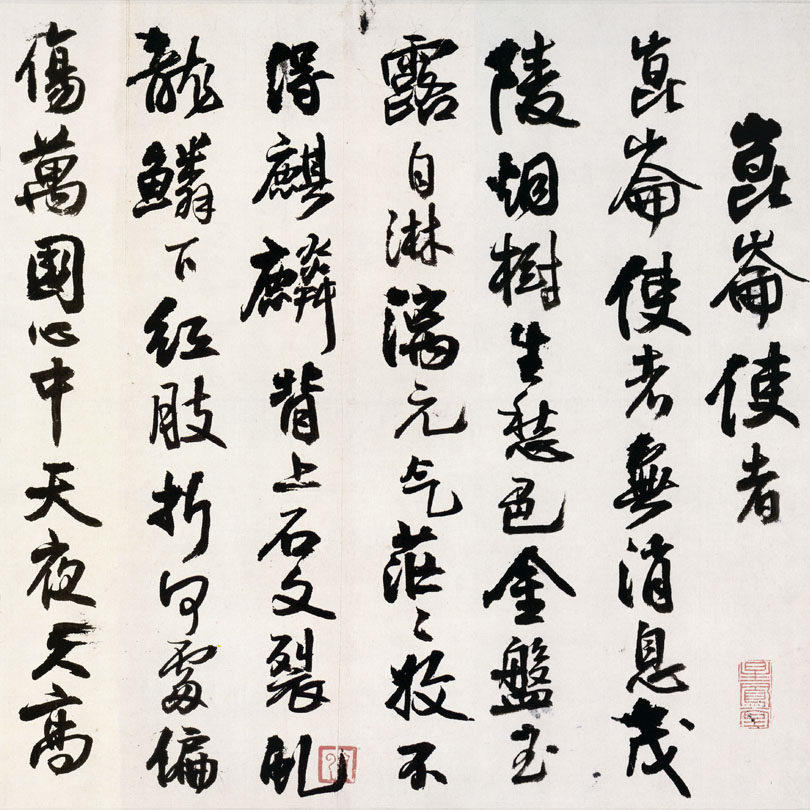 崑崙使者
崑崙使者無消息茂
陵烟樹生愁色金盤玉
露自淋漓元气茫〻收不
得麒麟背上石文裂虬
龍鱗下紅肢折何處偏
傷萬國心中天夜久高